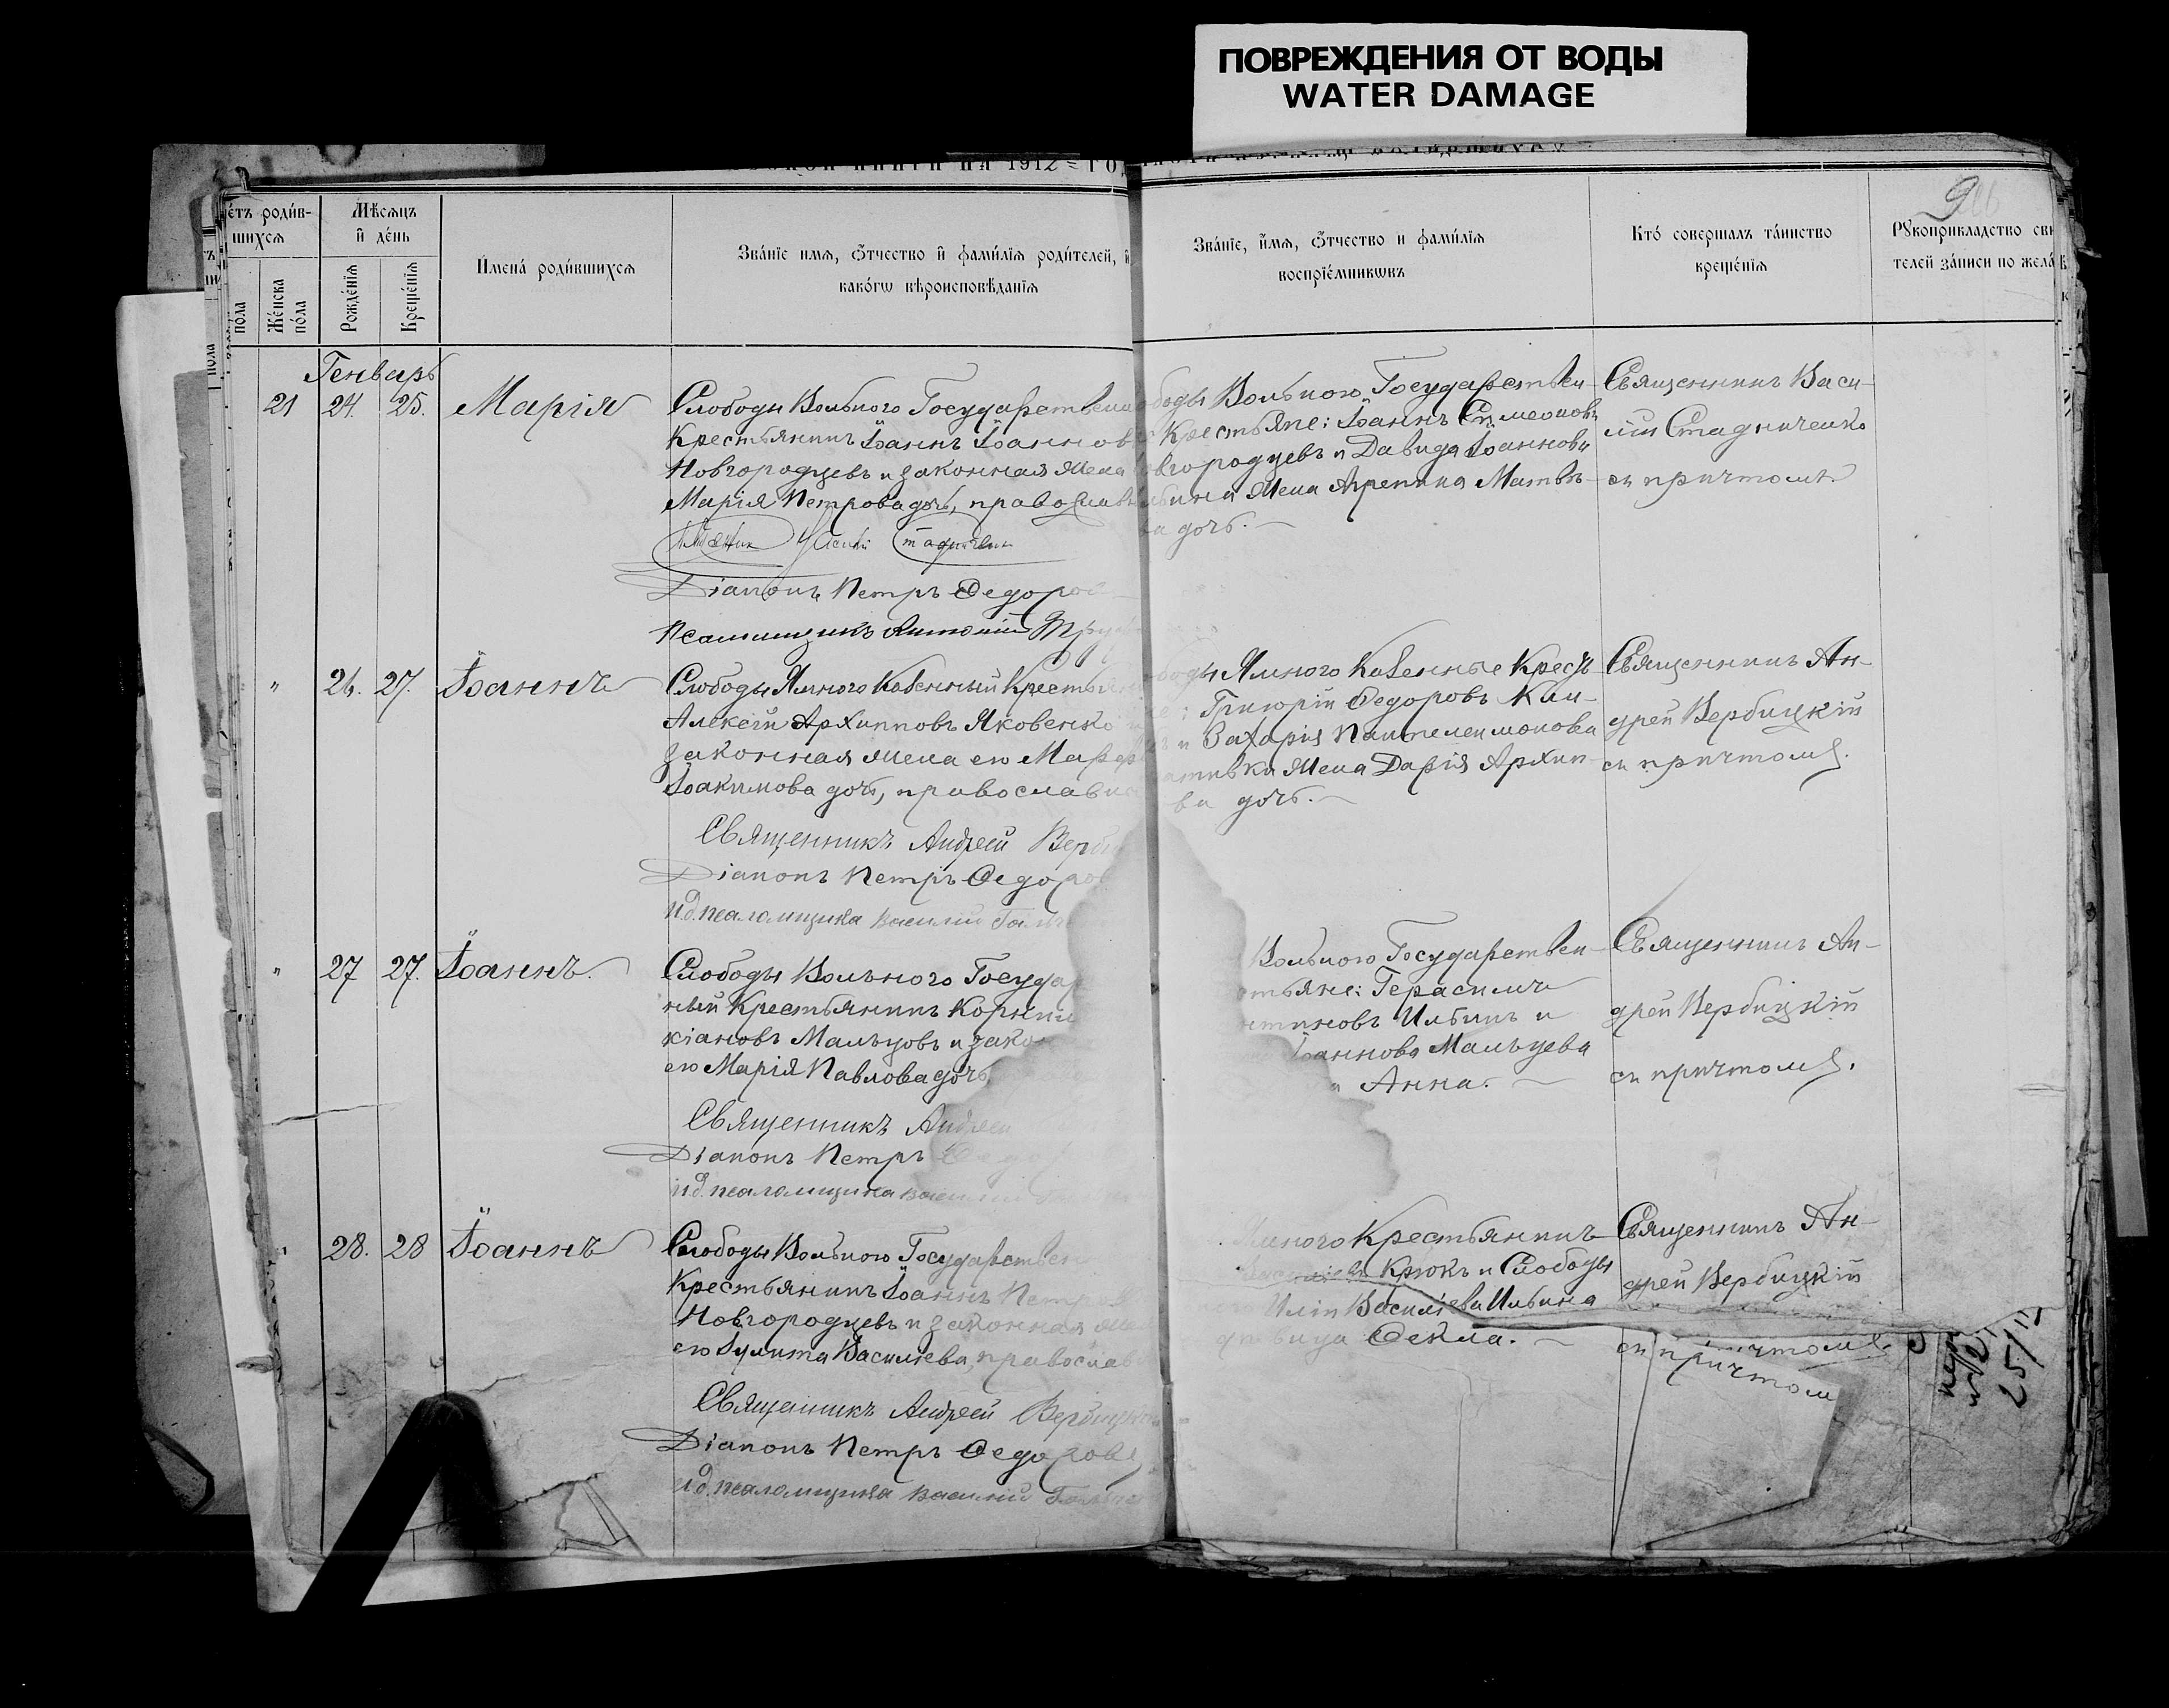 ПОВРЕЖДЕНИЯ ОТ ВОДЫ
WATER DAMAGE
книги на 1912 год
родив-
шихся
Мѣсяцъ
и день
пола
Женска
пола
Рожденія
Крещенія
Имена родившихся
Званіе имя, отчество и фамилія родителей, и
какогω вѣроисповѣданія
Званіе, имя, отчество и фамилія
воспріемникωвъ
Кто совершалъ таинство
крещенія
Рукоприкладство сви
телей записи по жела
Генварь
21 24. 25. Марія
Слободы Вольного Государственн
Крестьянинъ Іоаннъ Іоаннов
Новгородцевъ и законная жена
Марія Петрова дочь, православн
Діаконъ Петръ Ѳедоров
Псаломщикъ Антоній
Вольного Государствен-
Крестьяне: Іоаннъ Симеоновъ
овгородцевъ и Давида Іоаннова
льина жена Агрепина Матвѣ-
ва дочь.
Священникъ Васи-
лій Стадниченко
съ причтомъ.
" 26. 27. Іоаннъ
Слободы Ямного Казенный Крестьян
Алексѣй Архиповъ Яковенко и
законная жена его Марѳа
Іоакимова дочь, православн
Священникъ Андрей Верб
Діаконъ Петръ Ѳедоров
И.д. псаломщика Василій
Ямного Казенные Кресть
: Григорій Ѳедоровъ Кли-
и Захарія Пантелеимонова
жена Дарія Архип-
ва дочь.
Священникъ Ан-
дрей Вербицкій
съ причтомъ.
" 27 27. Іоаннъ.
Слободы Вольного Государ
ный Крестьянинъ Корнил
кіановъ Мальцовъ и зако
его Марія Павлова дочь,
Священникъ Андрей
Діаконъ Петръ Ѳедор
И.д. псаломщика Василій
Вольного Государствен-
стьяне: Герасимъ
нтиновъ Ильинъ и
Іоаннова Мальцева
Анна.
Священникъ Ан-
дрей Вербицкій
съ причтомъ.
" 28. 28 Іоаннъ
Слободы Вольного Государствен
Крестьянинъ Іоаннъ Петров
Новгородцевъ и законная же
его Іулита Васильева, православ
Священникъ Андрей Вербицк
Діаконъ Петръ Ѳедоров
И.д. псаломщика Василій
Ямного Крестьянинъ
Крюкъ и Слободы
Иліи Васильева Ильина
дѣвица Ѳекла.
Священникъ Ан-
дрей Вербицкій
съ причтомъ